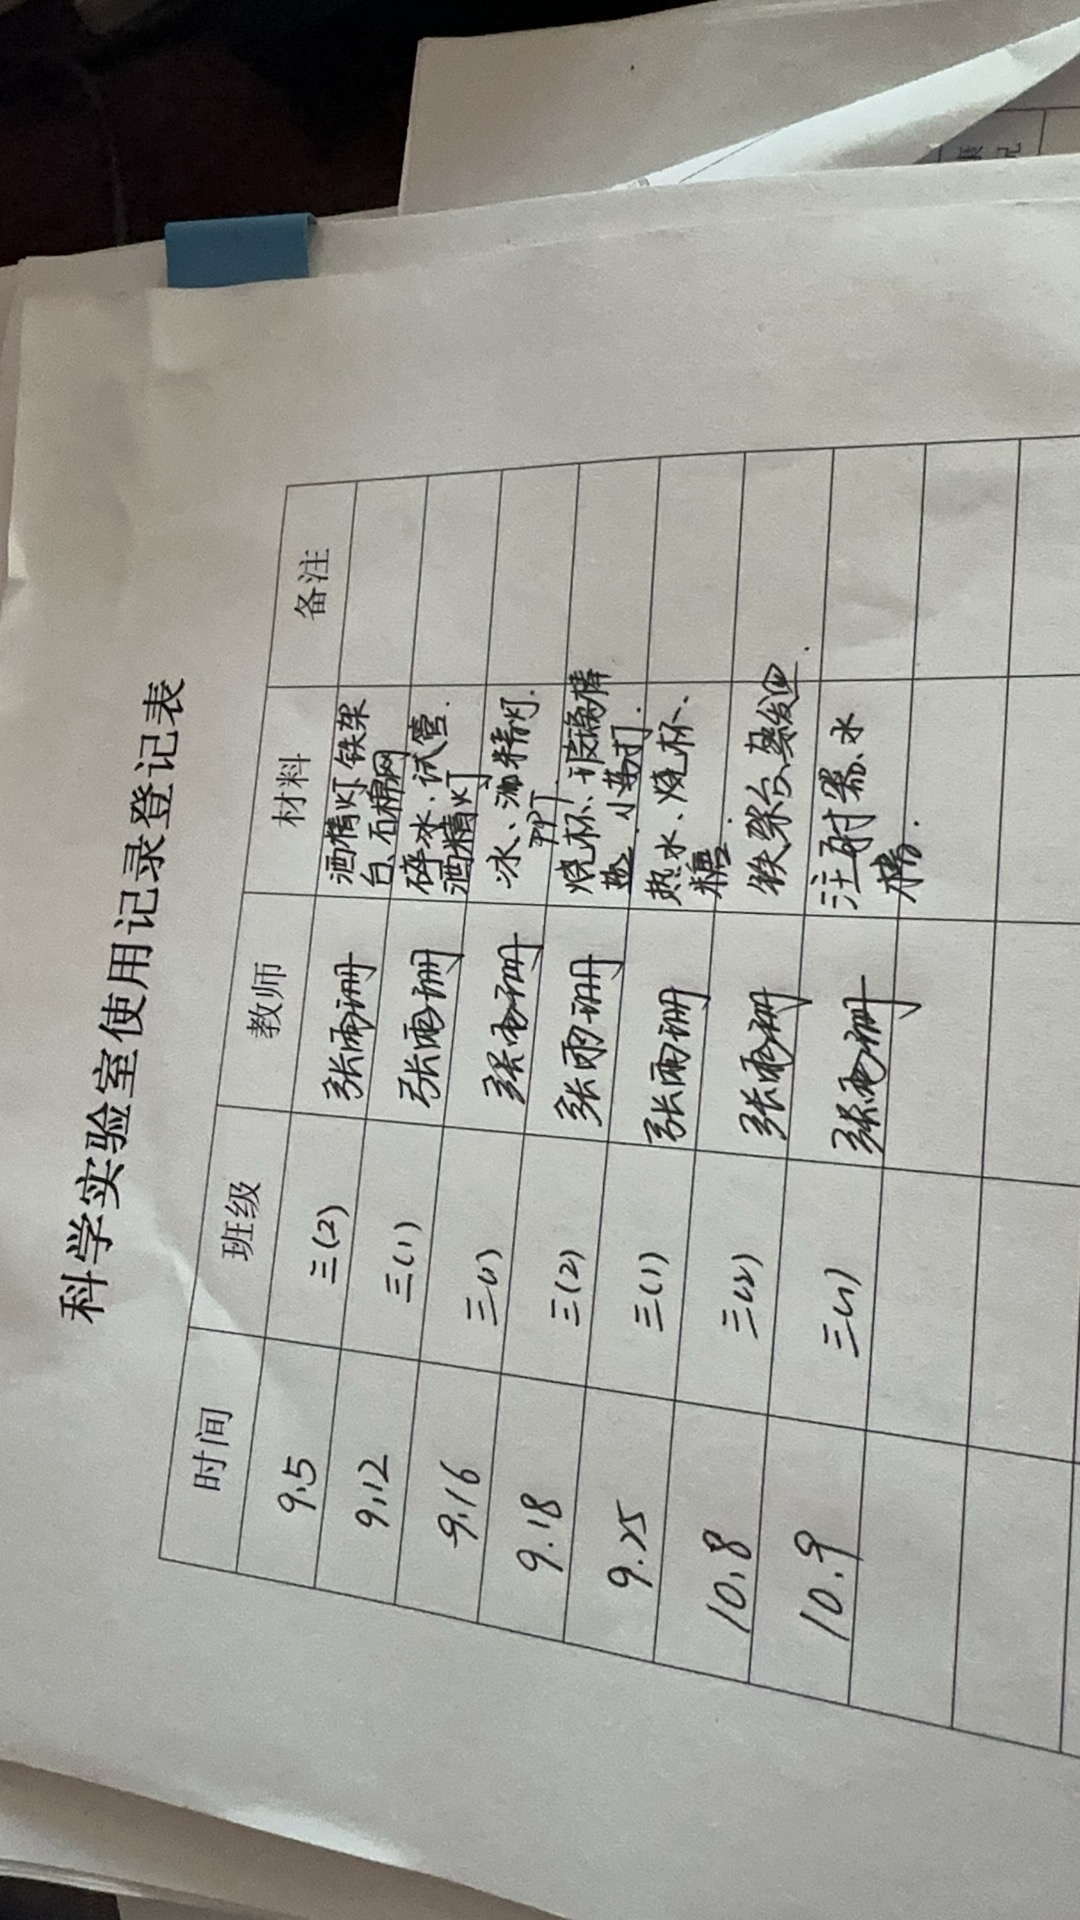 科学实验室使用记录登记表
时间 班级 教师 材料 备注
9.5 三(2) 张雨珊 酒精灯、铁架
台、石棉网
9.12 三(1) 张雨珊 碎冰、试管、
酒精灯
9.16 三(1) 张雨珊 冰、酒精灯、
PPT
9.18 三(2) 张雨珊 烧杯、玻璃棒
盐、小苏打
9.25 三(1) 张雨珊 热水、烧杯、
糖
10.8 三(2) 张雨珊 铁架台、蒸发皿
10.9 三(1) 张雨珊 注射器、水